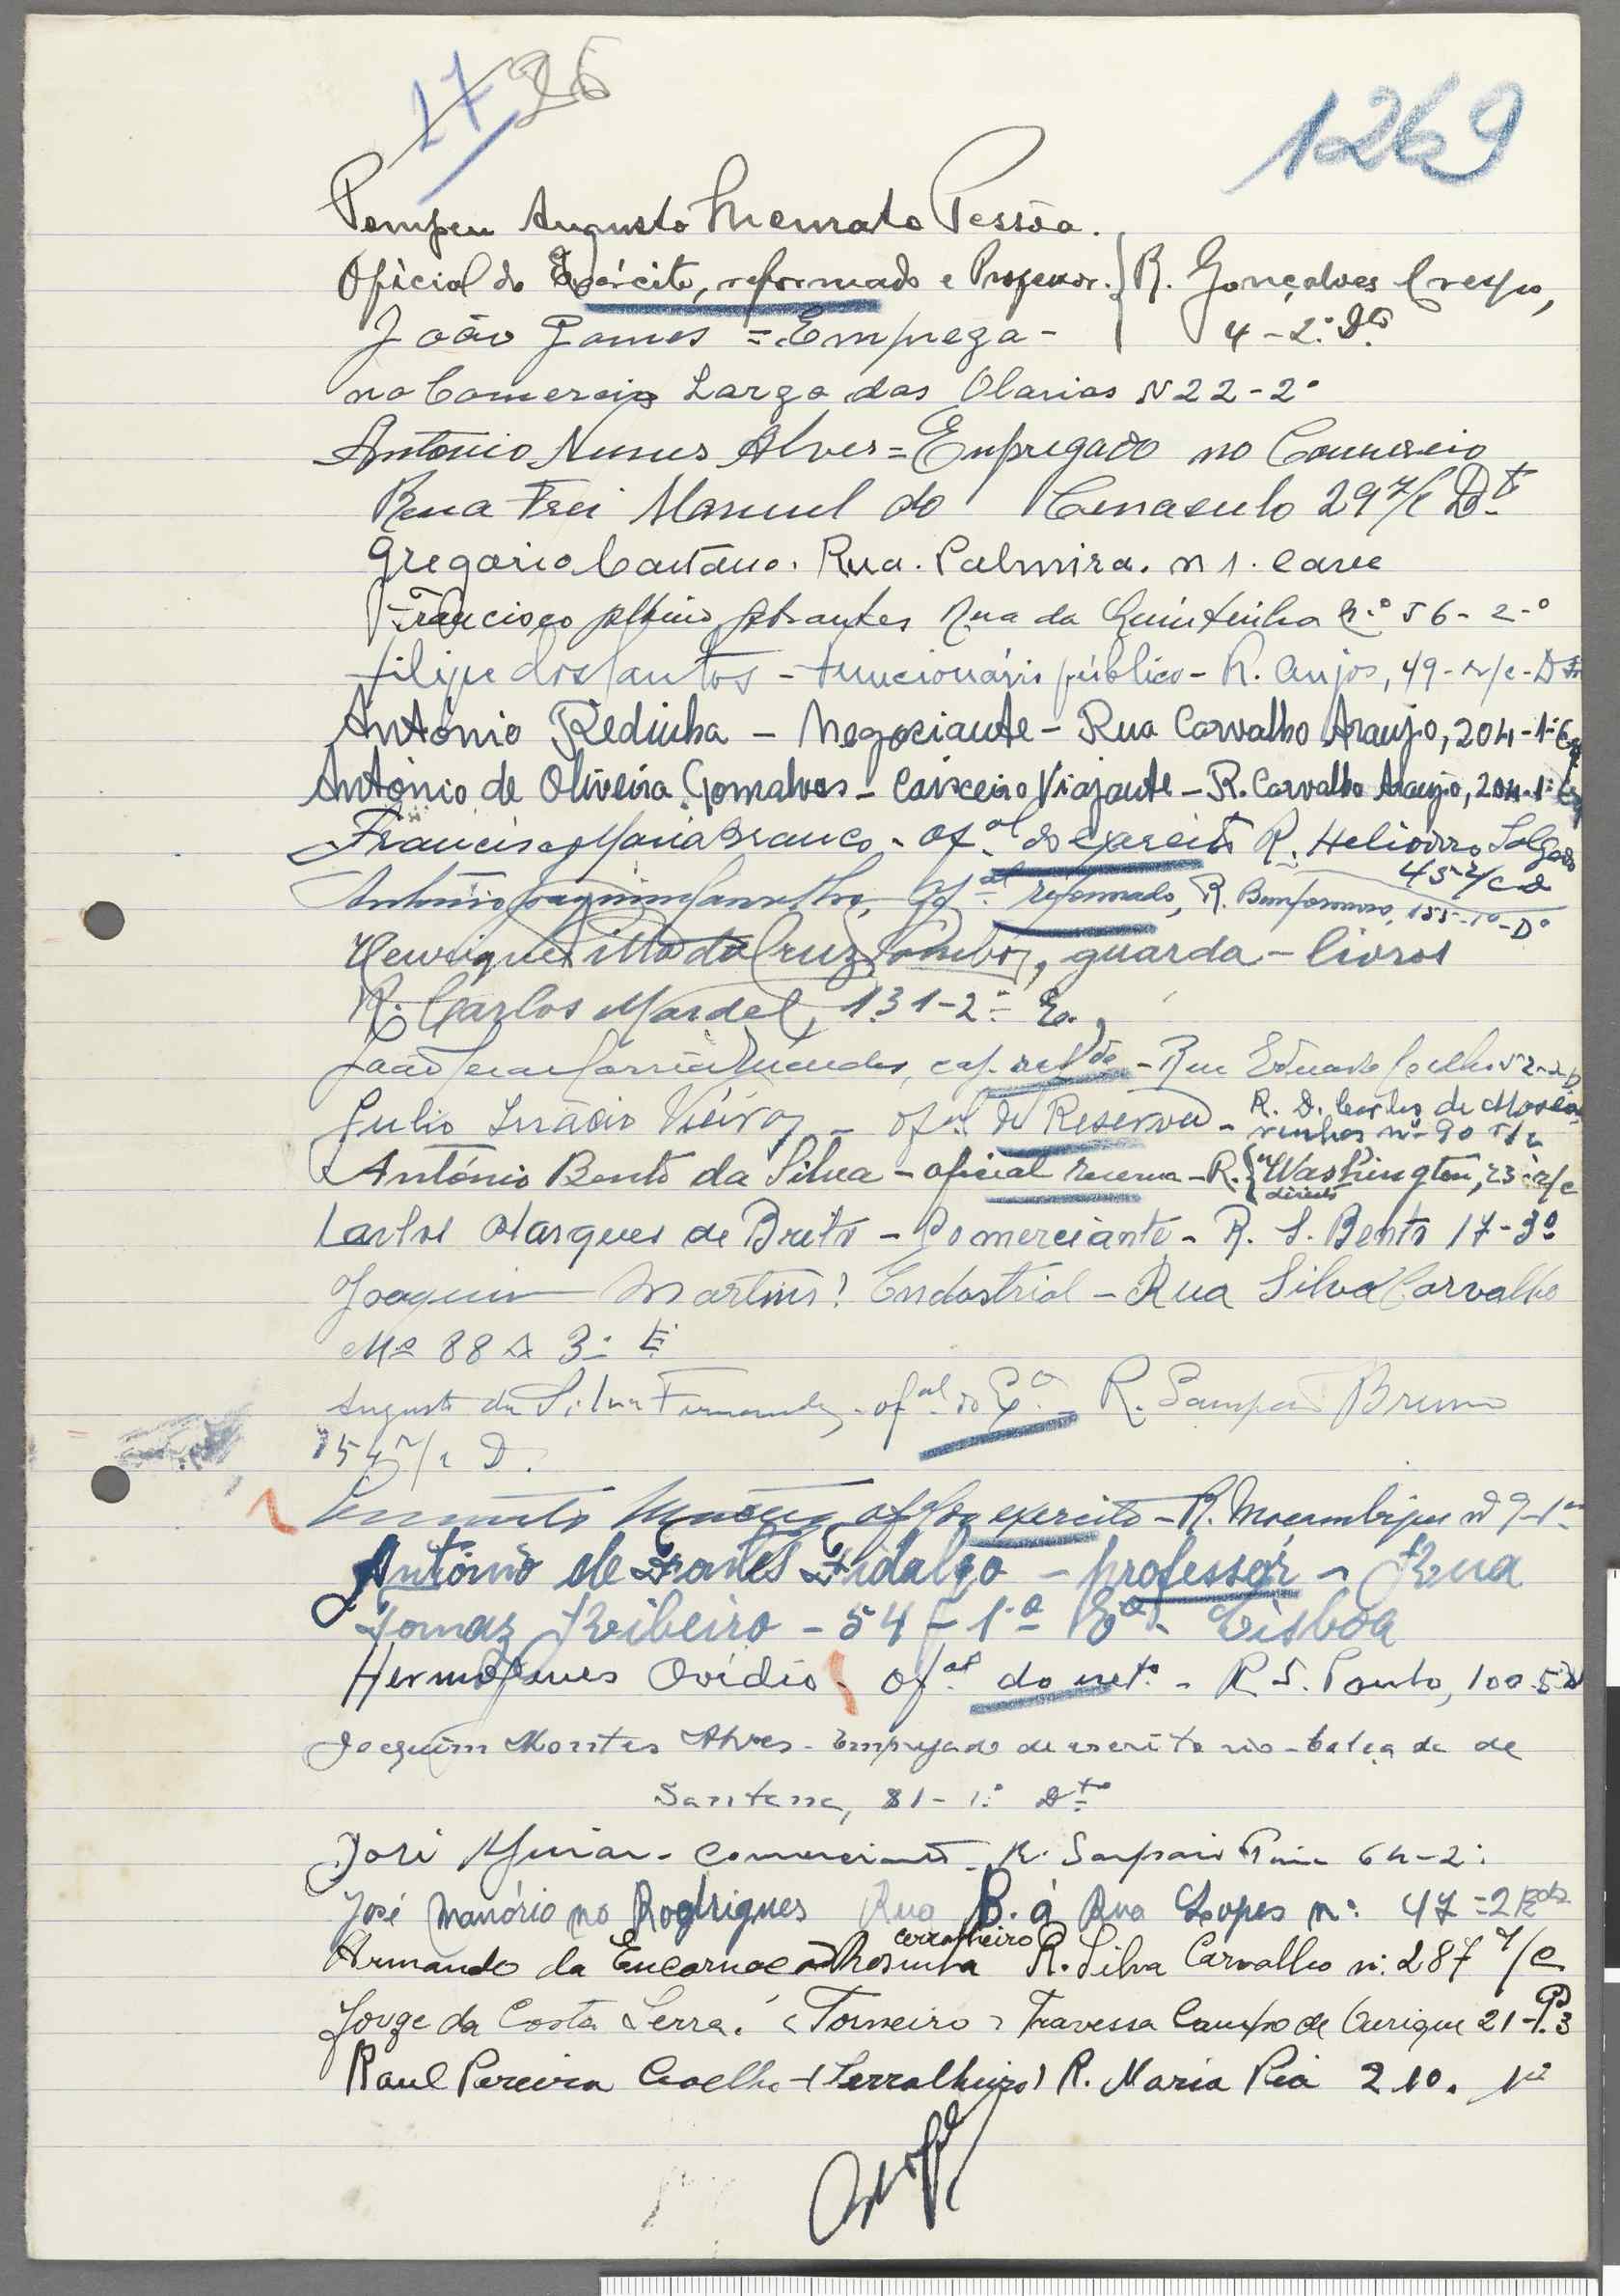 17 26
1269
Pompeu Augusto Pessôa.
Oficial do Exército, reformado e Professor. } R. Gonçalves Crespo,
4-2.º Dto
João Gomes = Emprega-
no Comercio Largo das Olarias N 22-2º
António Nunes Alves = Empregado no Commercio
Rua Frei Manuel do Cenaculo 29 r/c Dt.
Gregorio Caetano. Rua. Palmira. n 1. cave
Francisco Abrantes Rua da Quintinha n.º 56-2.º
Filipe dos Santos - Funcionário público - R. Anjos, 49-r/c-Dt
António Redinha - Negociante - Rua Carvalho Araujo, 204-1.º Esq
António de Oliveira Gomalves - Caixeiro Viajante - R. Carvalho Araujo, 204-1.º Esq
Francisco Maria Branco - Of.al do exercito R. Heliodoro Salgado
45 r/c D
António Joaquim Of.al reformado, R. Bemformoso, 155-1º-Dº
Henrique da Cruz Pombo, guarda-livros
R. Carlos Mardel, 131-2.º E.
João Mendes, cap. - Rua Eduardo Coelho 52-2-D
Julio Inácio Vieira - of.al de Reserva - R. D. Carlos de Masca-
renhas nº 90
António Bento da Silva - oficial reserva - R. Washington, 23 r/c
direito
Carlos Marques de Brito - Comerciante - R. S. Bento 17-3º
Joaquim Martins! Endostrial - Rua Silva Carvalho
Nº 88 A 3.º E
Augusto da Silva Fernandes, of.al do Ex.o - R. Sampaio Bruno
15 r/c D.
of. do exercito - R. Moçambique nº 9-1º
António de Frontes Fidalgo - professor - Rua
Tomaz Ribeiro - 54-1.º Eº - Lisboa
Hermógenes Ovídio - Of.al - R. S. Paulo, 100-5º D
Joaquim Montes Alves - Empregado de escritorio - Calçada de
Santana, 81-1.º Dto
José - Comerciante - R. Sampaio 64-2.º
José Manório no Rodrigues Rua B. á Rua Lopes n.º 47-2
Armando da Encarnação Rosinha serralheiro R. Silva Carvalho n.º 287 r/c
Jorge da Costa Serra. (Torneiro) Travessa Campo de Ourique 21-P.3
Raul Pereira Coelho - (Serralheiro) R. Maria Pia 210. 1º